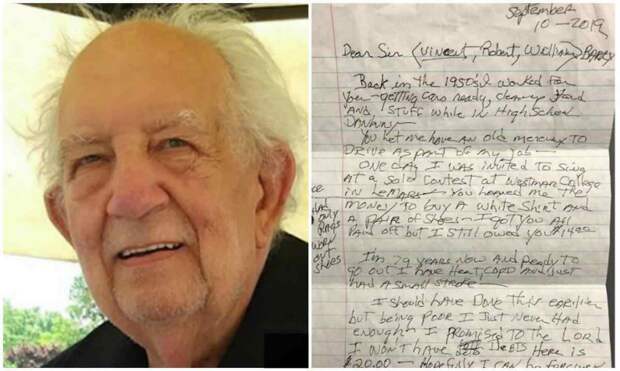 September
10-2019
Dear Sir (Vincent, Robert, William) BARRY
Back in the 1950's I worked for
you - getting cars ready, cleaning
AND, STUFF while in High School
You let me have an old mercury TO
DRIVE AS PART of my Job -
ONE day I was invited to Sing
AT a Solo Contest at Westmar College
IN LeMARS - You loaned me the
money TO buy A white Shirt AND
A PAIR of Shoes - I got you All
PAID off but I Still owed you $14.00
I'm 79 years Now AND ready to
go out I have Heart, COPD AND Just
had A Small Stroke -
I should have Done This earlier
but being poor I Just Never HAD
enough I promised TO the LORD
I won't have DeBTS Here is
$20.00 - Hopefully I can be forgiven
ONly
WORN
OUT
Shoes